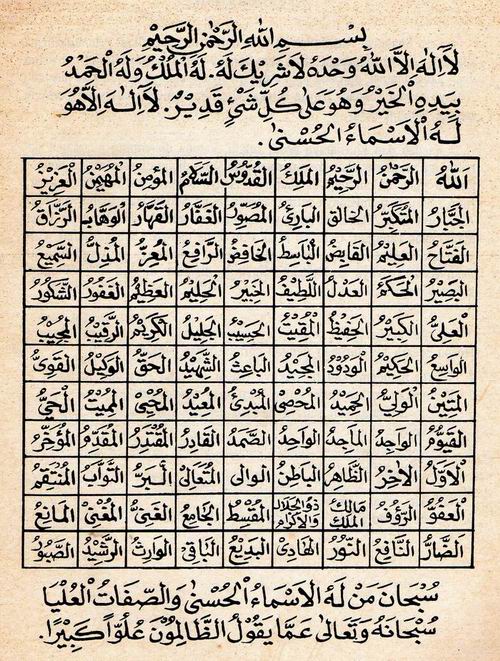 بِسْمِ اللهِ الرَّحْمٰنِ الرَّحِيْمِ
لَآ اِلٰهَ اِلَّا اللهُ وَحْدَهُ لَا شَرِيْكَ لَهُ. لَهُ الْمُلْكُ وَلَهُ الْحَمْدُ
بِيَدِهِ الْخَيْرُ وَهُوَ عَلٰى كُلِّ شَيْءٍ قَدِيْرٌ. لَآ اِلٰهَ اِلَّا هُوَ
لَهُ الْاَسْمَاءُ الْحُسْنٰى.
اَللهُ الرَّحْمٰنُ الرَّحِيْمُ الْمَلِكُ الْقُدُّوْسُ السَّلَامُ الْمُؤْمِنُ الْمُهَيْمِنُ الْعَزِيْزُ
الْجَبَّارُ الْمُتَكَبِّرُ الْخَالِقُ الْبَارِئُ الْمُصَوِّرُ الْغَفَّارُ الْقَهَّارُ الْوَهَّابُ الرَّزَّاقُ
الْفَتَّاحُ الْعَلِيْمُ الْقَابِضُ الْبَاسِطُ الْخَافِضُ الرَّافِعُ الْمُعِزُّ الْمُذِلُّ السَّمِيْعُ
الْبَصِيْرُ الْحَكَمُ الْعَدْلُ اللَّطِيْفُ الْخَبِيْرُ الْحَلِيْمُ الْعَظِيْمُ الْغَفُوْرُ الشَّكُوْرُ
الْعَلِيُّ الْكَبِيْرُ الْحَفِيْظُ الْمُقِيْتُ الْحَسِيْبُ الْجَلِيْلُ الْكَرِيْمُ الرَّقِيْبُ الْمُجِيْبُ
الْوَاسِعُ الْحَكِيْمُ الْوَدُوْدُ الْمَجِيْدُ الْبَاعِثُ الشَّهِيْدُ الْحَقُّ الْوَكِيْلُ الْقَوِيُّ
الْمَتِيْنُ الْوَلِيُّ الْحَمِيْدُ الْمُحْصِى الْمُبْدِئُ الْمُعِيْدُ الْمُحْيِى الْمُمِيْتُ الْحَيُّ
الْقَيُّوْمُ الْوَاجِدُ الْمَاجِدُ الْوَاحِدُ الصَّمَدُ الْقَادِرُ الْمُقْتَدِرُ الْمُقَدِّمُ الْمُؤَخِّرُ
الْاَوَّلُ الْاٰخِرُ الظَّاهِرُ الْبَاطِنُ الْوَالِى الْمُتَعَالِى الْبَرُّ التَّوَّابُ الْمُنْتَقِمُ
الْعَفُوُّ الرَّؤُفُ مَالِكُ الْمُلْكِ ذُو الْجَلَالِ وَالْاِكْرَامِ الْمُقْسِطُ الْجَامِعُ الْغَنِيُّ الْمُغْنِى الْمَانِعُ
الضَّارُّ النَّافِعُ النُّوْرُ الْهَادِى الْبَدِيْعُ الْبَاقِى الْوَارِثُ الرَّشِيْدُ الصَّبُوْرُ
سُبْحَانَ مَنْ لَهُ الْاَسْمَاءُ الْحُسْنٰى وَالصِّفَاتُ الْعُلْيَا
سُبْحَانَهُ وَتَعَالٰى عَمَّا يَقُوْلُ الظَّالِمُوْنَ عُلُوًّا كَبِيْرًا.